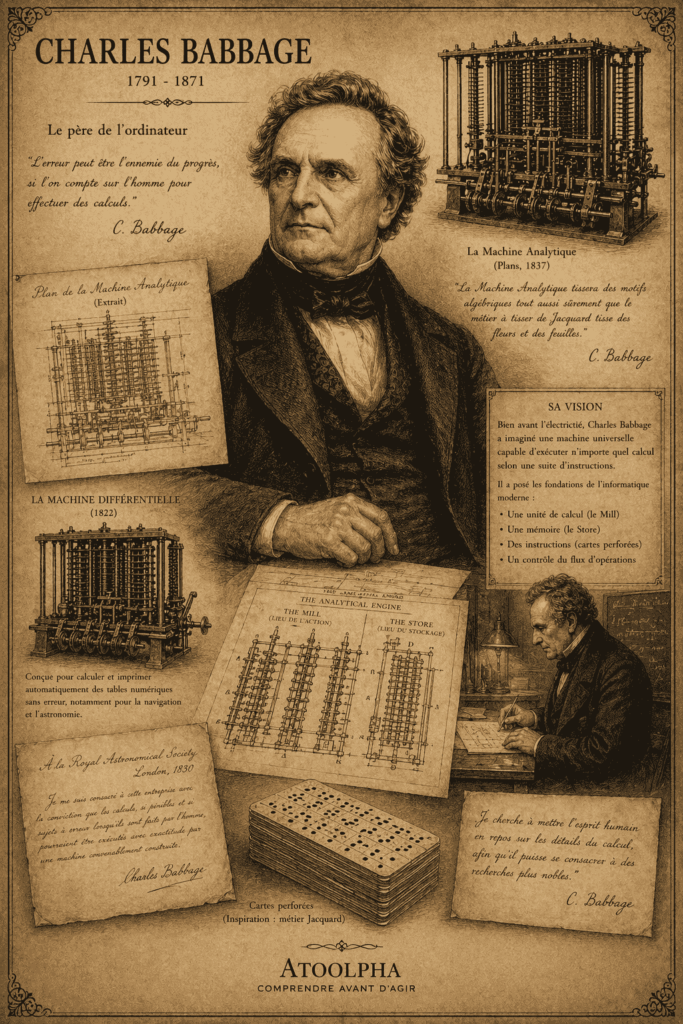 CHARLES BABBAGE
1791 - 1871
Le père de l'ordinateur
"L'erreur peut être l'ennemie du progrès,
si l'on compte sur l'homme pour
effectuer des calculs."
C. Babbage
La Machine Analytique
(Plans, 1837)
"La Machine Analytique tissera des motifs
algébriques tout aussi sûrement que le
métier à tisser de Jacquard tisse des
fleurs et des feuilles."
C. Babbage
Plan de la Machine Analytique
(Extrait)
SA VISION
Bien avant l'électrictié, Charles Babbage
a imaginé une machine universelle
capable d'exécuter n'importe quel calcul
selon une suite d'instructions.
Il a posé les fondations de l'informatique
moderne :
• Une unité de calcul (le Mill)
• Une mémoire (le Store)
• Des instructions (cartes perforées)
• Un contrôle du flux d'opérations
LA MACHINE DIFFÉRENTIELLE
(1822)
Conçue pour calculer et imprimer
automatiquement des tables numériques
sans erreur, notamment pour la navigation
et l'astronomie.
THE ANALYTICAL ENGINE
THE MILL
(LIEU DE L'ACTION)
THE STORE
(LIEU DU STOCKAGE)
À la Royal Astronomical Society
London, 1830
Je me suis consacré à cette entreprise avec
la conviction que les calculs, si pénibles et si
sujets à erreur lorsqu'ils sont faits par l'homme,
pourraient être exécutés avec exactitude par
une machine convenablement construite.
Charles Babbage
Cartes perforées
(Inspiration : métier Jacquard)
"Je cherche à mettre l'esprit humain
en repos sur les détails du calcul,
afin qu'il puisse se consacrer à des
recherches plus nobles."
C. Babbage
ATOOLPHA
COMPRENDRE AVANT D'AGIR